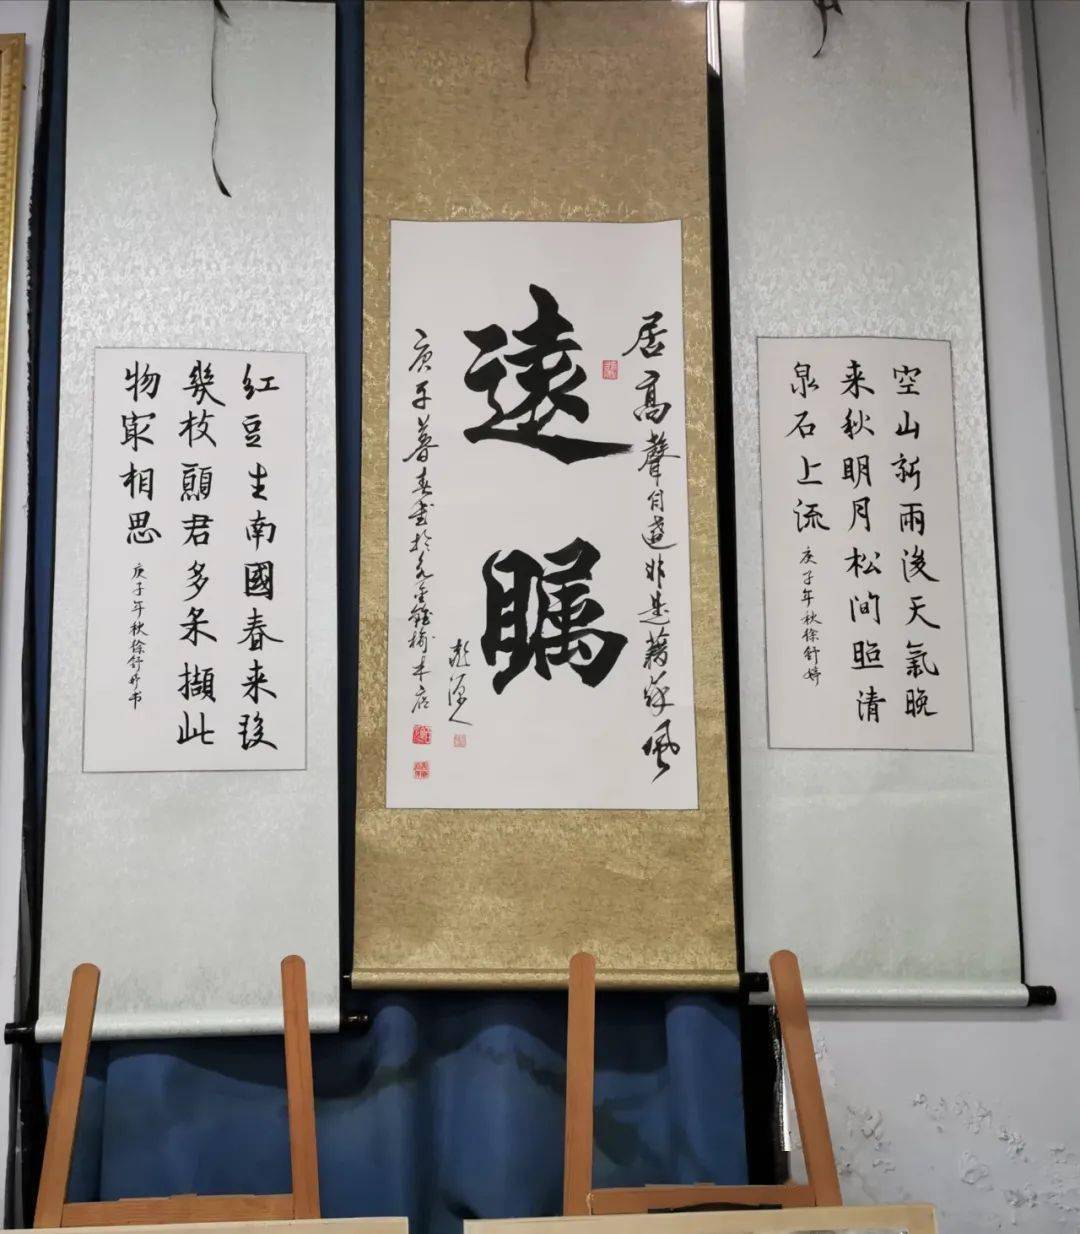 空山新雨後天氣晚
来秋明月松间照清
泉石上流
庚子年秋徐舒婷
居高聲自遠非是藉秋風
遠瞩
庚子暮春書於
本店
红豆生南國春来發
幾枝願君多采擷此
物冣相思
庚子年秋徐舒婷书